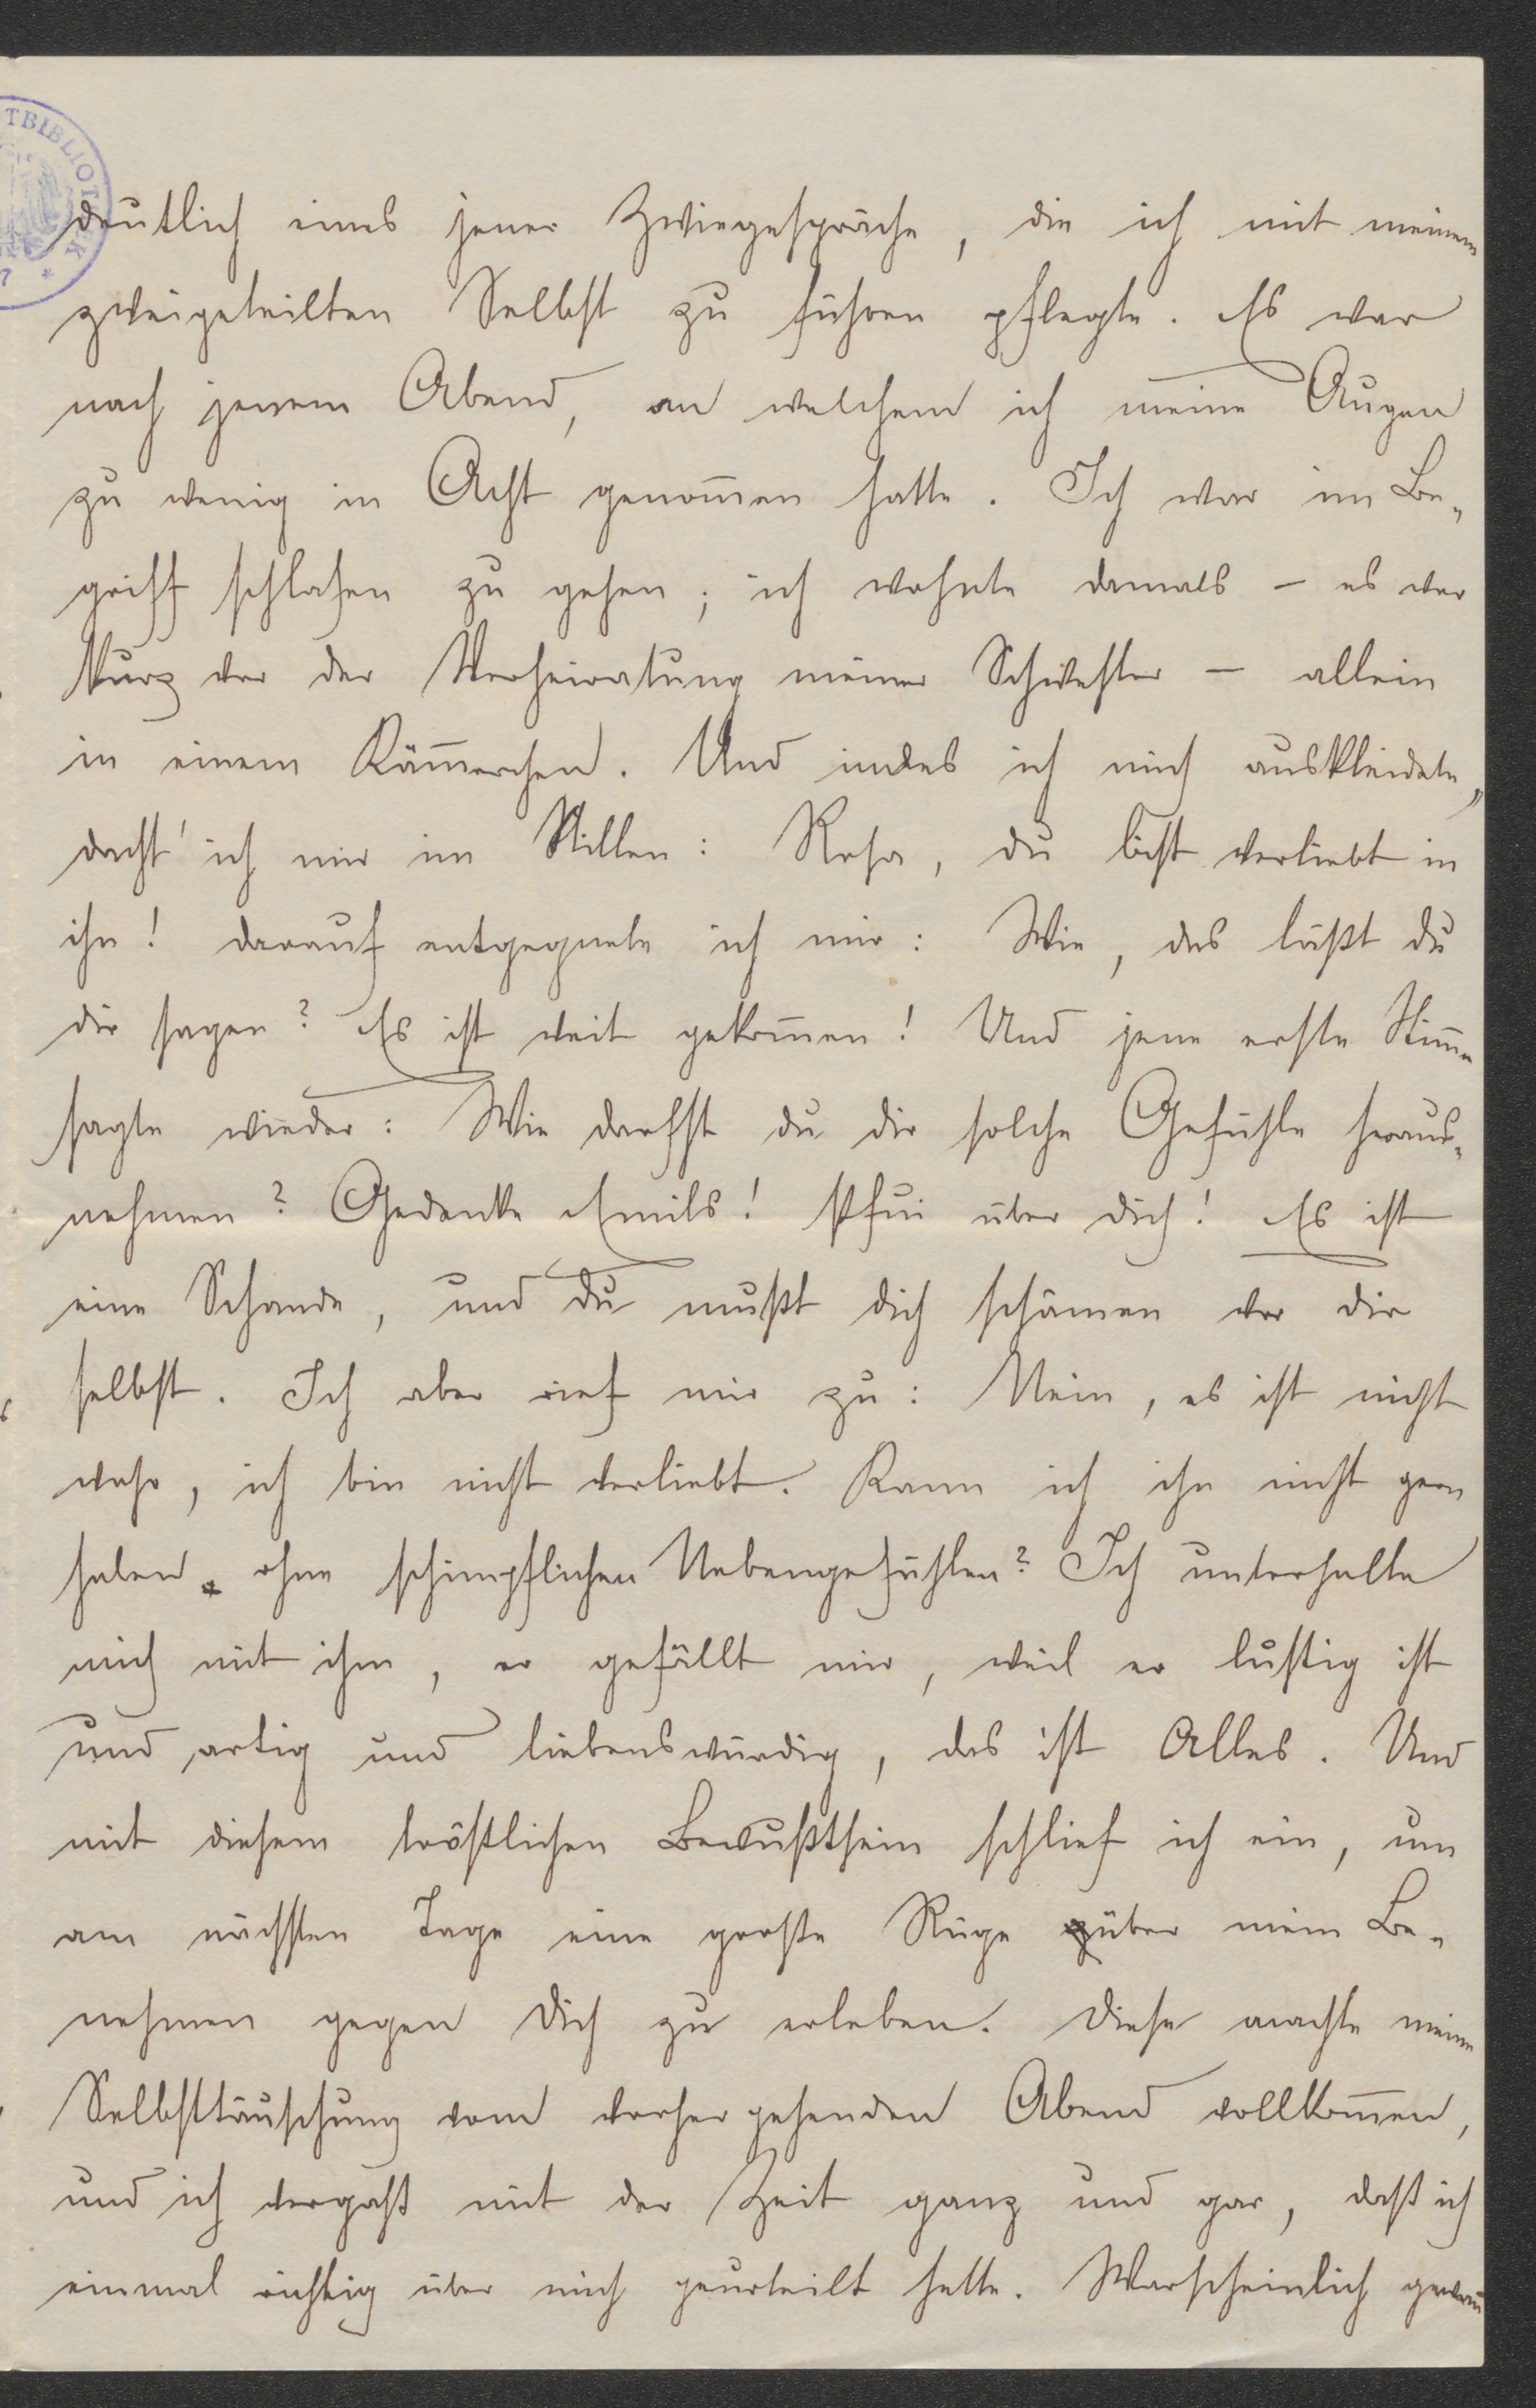 TBIBLIOTHEK
7 *
deutlich eines jener Zwiegespräche, die ich mit meinem
zweigeteilten Selbst zu führen pflegte. Es war
nach jenem Abend, an welchem ich meine Augen
zu wenig in Acht genom̄en hatte. Ich war im Be-
griff schlafen zu gehen; ich wohnte damals – es war
kurz vor der Verheiratung meiner Schwester – allein
in einem Käm̄erchen. Und indes ich mich auskleidete,
dacht' ich mir im Stillen: Rosa, du bist verliebt in
ihn! darauf entgegnete ich mir: Wie, das läßt du
dir sagen? Es ist weit gekom̄en! Und jene erste Stim̄e
sagte wieder: Wie darfst du dir solche Gefühle heraus-
nehmen? Gedenke Emils! Pfui über dich! Es ist
eine Schande, und du mußt dich schämen vor dir
selbst. Ich aber rief mir zu: Nein, es ist nicht
wahr, ich bin nicht verliebt. Kann ich ihn nicht gern
haben ohne schimpflichen Nebengefühlen? Ich unterhalte
mich mit ihm, er gefällt mir, weil er lustig ist
und artig und liebenswürdig, das ist Alles. Und
mit diesem tröstlichen Bewußtsein schlief ich ein, um
am nächsten Tage eine große Rüge über mein Be-
nehmen gegen Dich zu erleben. Diese machte meine
Selbsttäuschung vom vorhergehenden Abend vollkom̄en,
und ich vergaß mit der Zeit ganz und gar, daß ich
einmal richtig über mich geurteilt hatte. Warscheinlich gewan̄